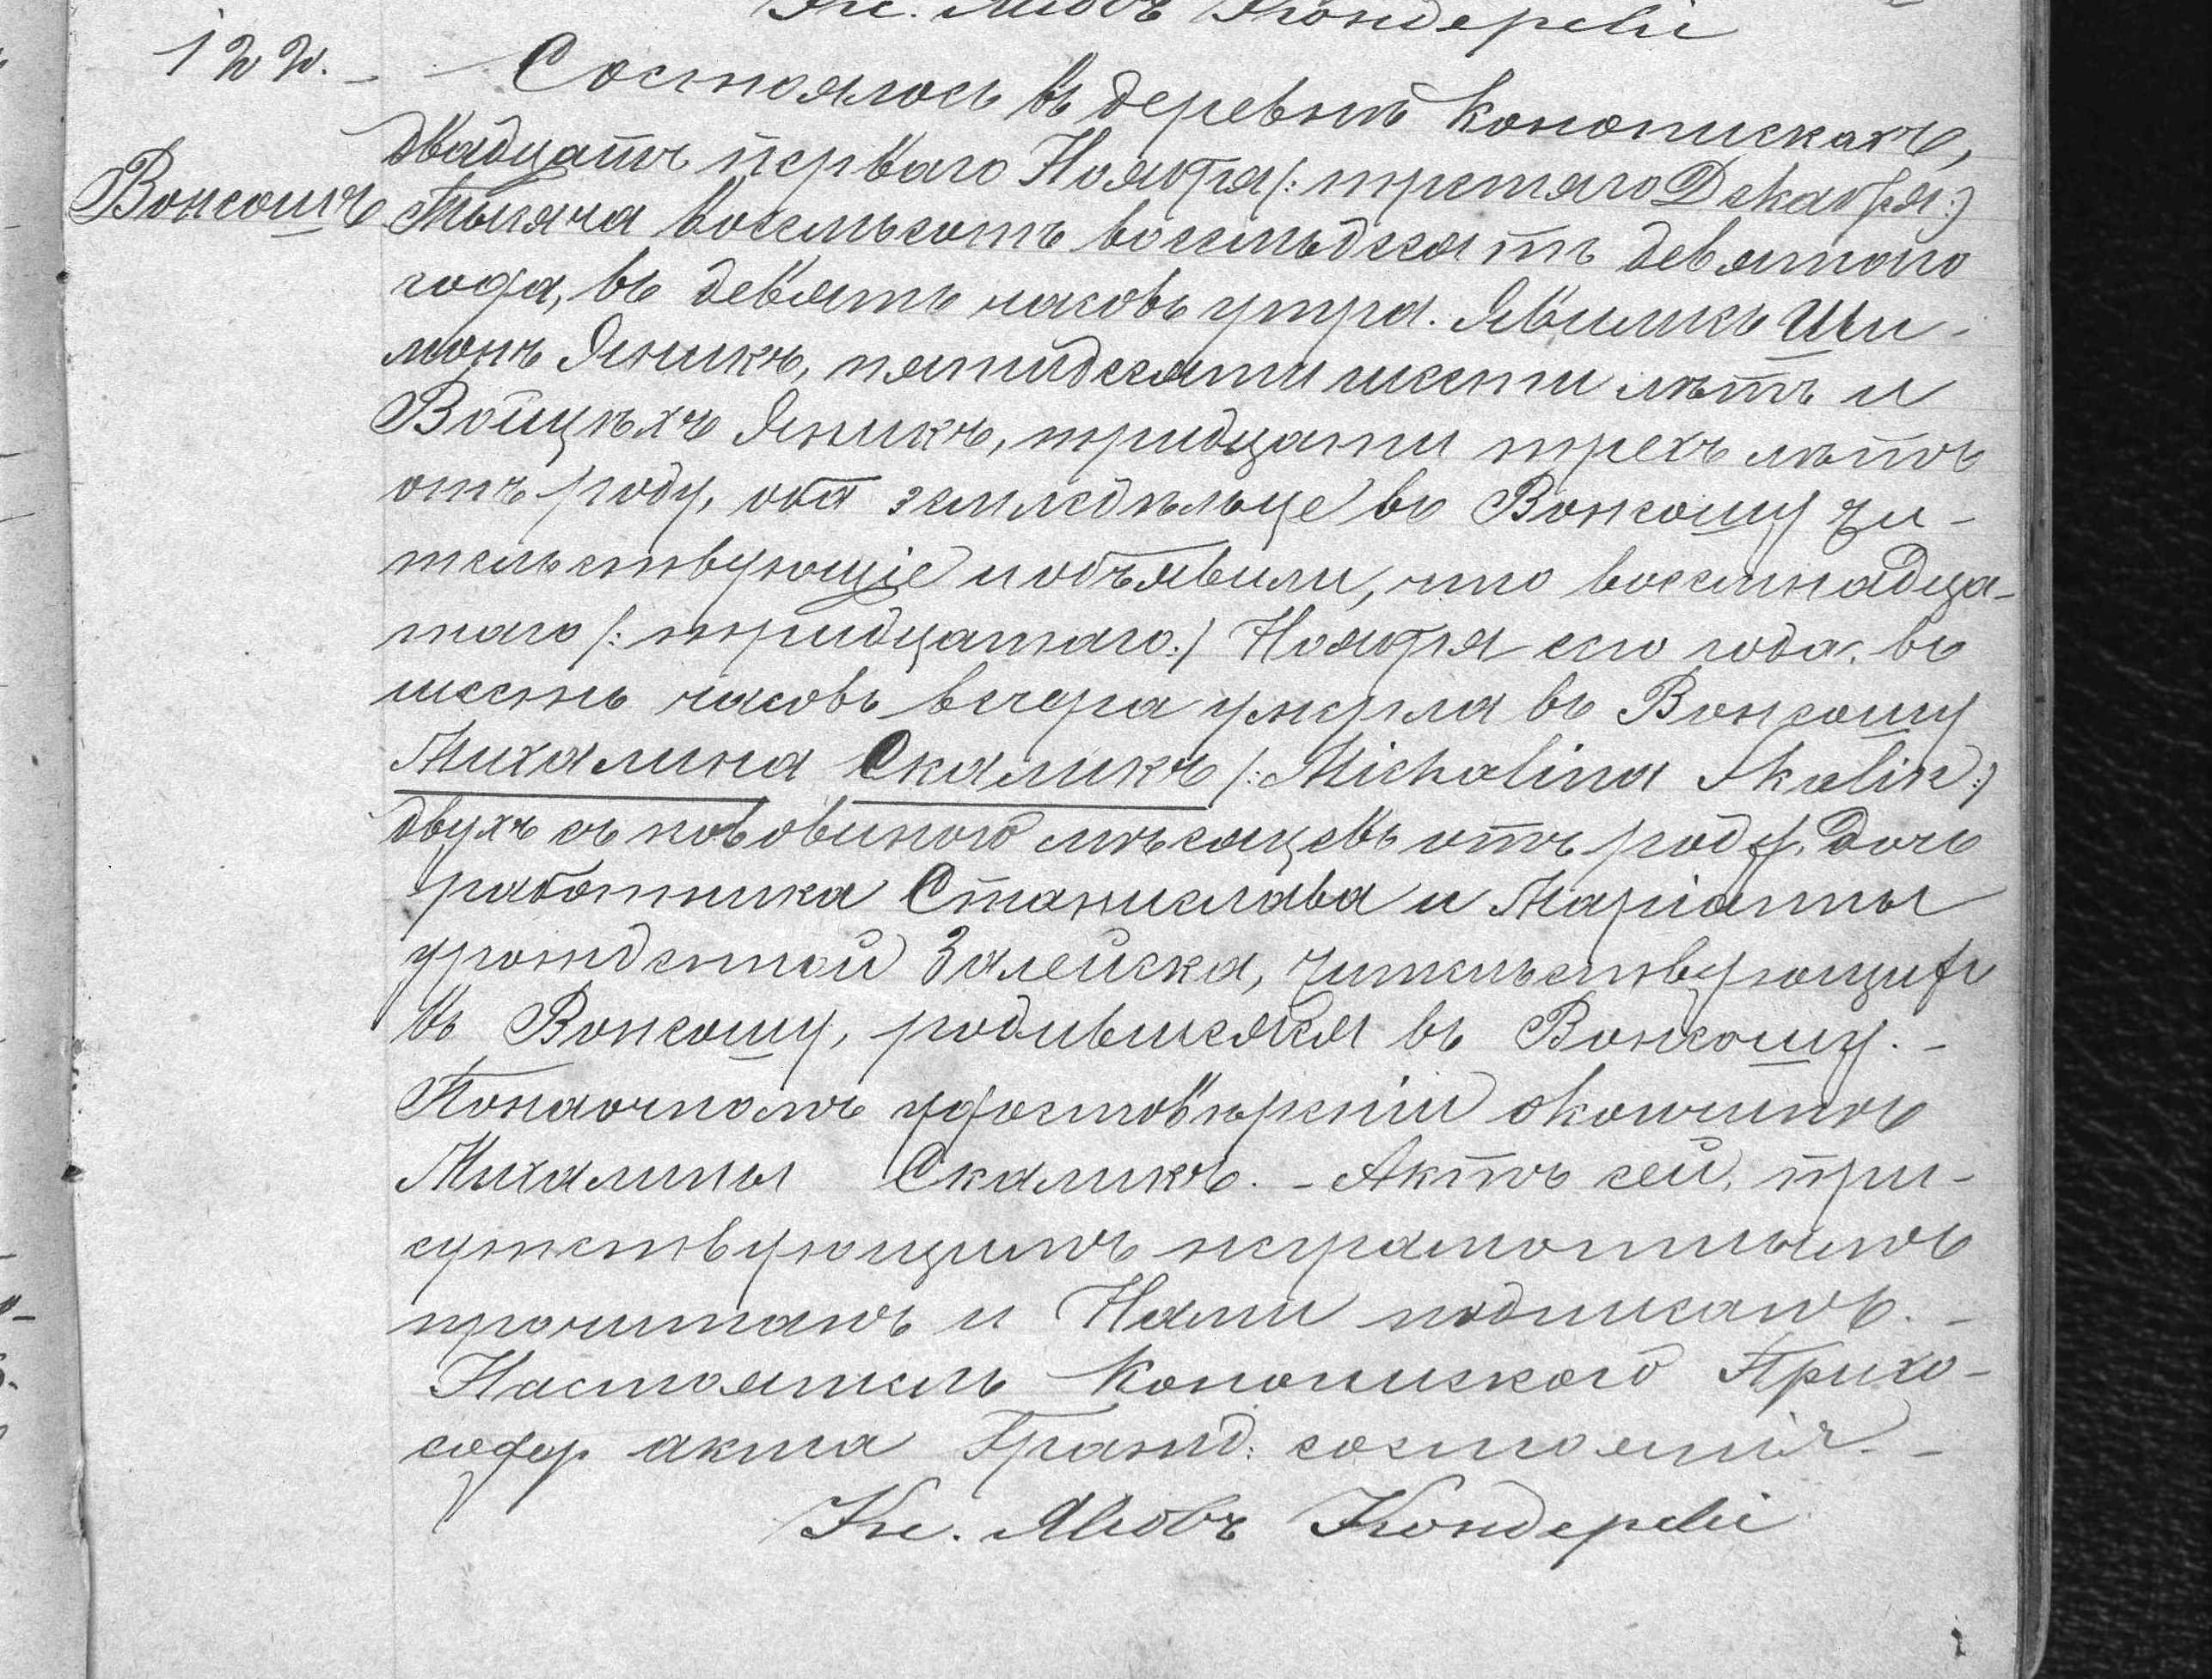 Кс. Яковъ Кондерскі
122. - Состоялось въ деревнѣ Конопискахъ,
двадцать перваго Ноября /: третяго Декабря :/
Вонсошъ тысяча восемьсотъ восемьдесятъ девятого
года, въ девять часовъ утра. Явились Ши-
монъ Яникъ, пятидесяти шести лѣтъ и
Войцѣхъ Яникъ, тридцати трехъ лѣтъ
отъ роду, оба земледѣльце въ Вонсошу жи-
тельствующіе и объявили, что восемнадца-
таго /: тридцатаго :/ Ноября сего года, въ
шесть часовъ вечера умерла въ Вонсошу
Михалина Скаликъ /: Michalina Skalik :/
двухъ съ половиною мѣсяцевъ отъ роду, дочь
работника Станислава и Маріанны
урожденной Залейска, жительствующих
въ Вонсошу, родившаяся въ Вонсошу. -
По наочномъ удостовѣреніи о кончинѣ
Михалины Скаликъ. - Актъ сей, при-
сутствующимъ неграмотнымъ
прочитанъ и Нами подписанъ. -
Настоятель Конопискаго Прихо-
содер акта Гражд. состоянія. -
Кс. Яковъ Кондерскі